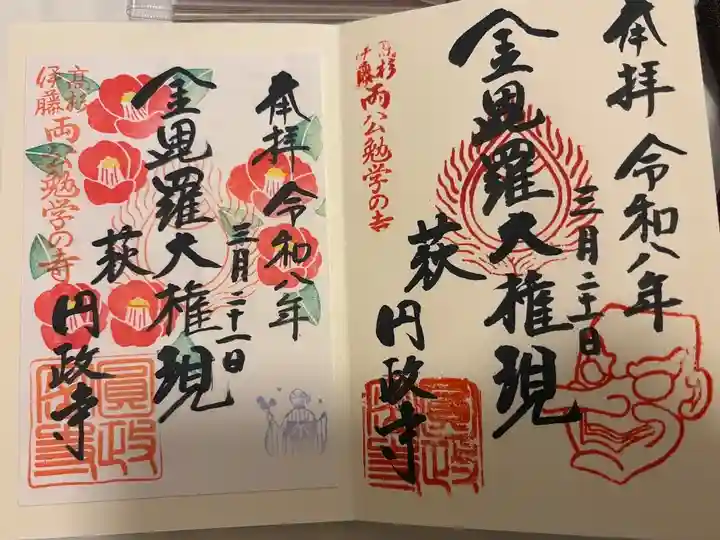 奉拝 令和八年
三月二十一日
金毘羅大権現
萩 円政寺
高杉
伊藤
両公勉学の寺
圓政寺
奉拝 令和八年
三月二十一日
金毘羅大権現
萩 円政寺
高杉
伊藤
両公勉学の寺
圓政寺